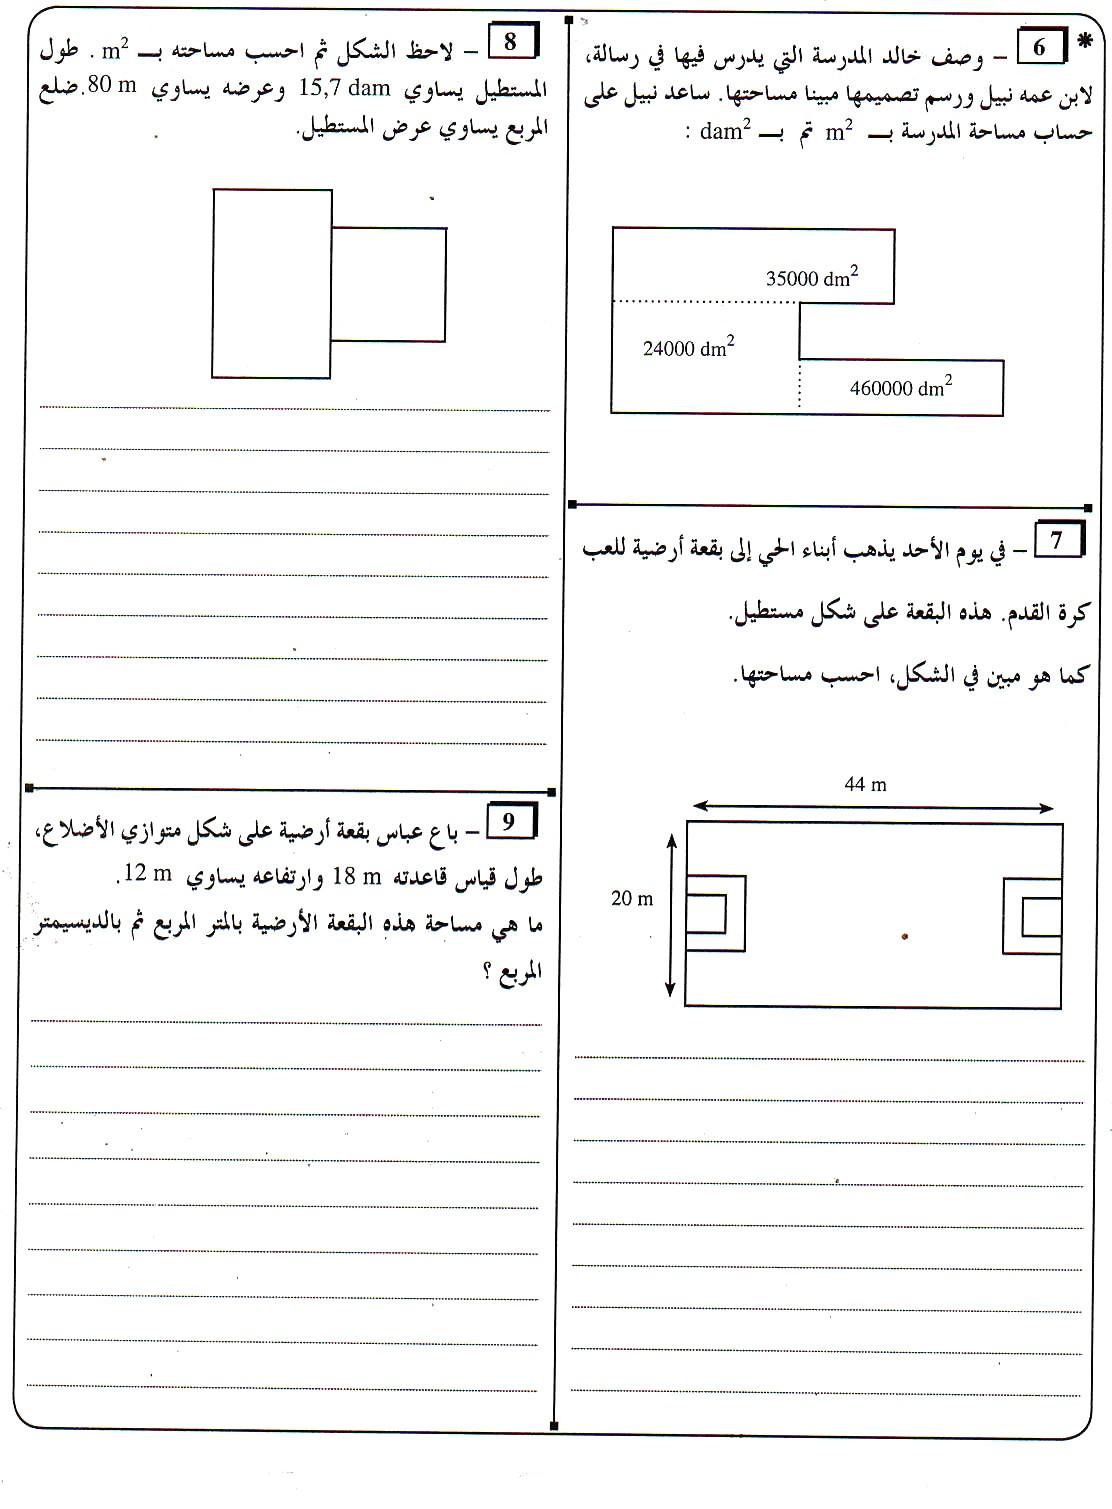 * 6 – وصف خالد المدرسة التي يدرس فيها في رسالة،
لابن عمه نبيل ورسم تصميمها مبينا مساحتها. ساعد نبيل على
حساب مساحة المدرسة بـ m² تم بـ dam² :
35000 dm²
24000 dm²
460000 dm²
7 – في يوم الأحد يذهب أبناء الحي إلى بقعة أرضية للعب
كرة القدم. هذه البقعة على شكل مستطيل.
كما هو مبين في الشكل، احسب مساحتها.
44 m
20 m
8 – لاحظ الشكل ثم احسب مساحته بـ m² . طول
المستطيل يساوي 15,7 dam وعرضه يساوي 80 m.ضلع
المربع يساوي عرض المستطيل.
9 – باع عباس بقعة أرضية على شكل متوازي الأضلاع،
طول قياس قاعدته 18 m وارتفاعه يساوي 12 m.
ما هي مساحة هذه البقعة الأرضية بالمتر المربع ثم بالديسيمتر
المربع ؟